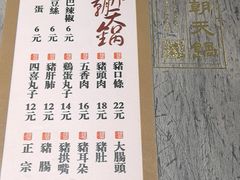 朝天鍋
朝天鍋
巴辣椒 6元
豆絲 6元
蛋 6元
豬口條 22元
豬頭肉 18元
五香肉 16元
鷄蛋丸子 14元
豬肝肺 12元
四喜丸子 12元
大腸頭
豬肚
豬耳朵
豬拱嘴
豬腸
正宗